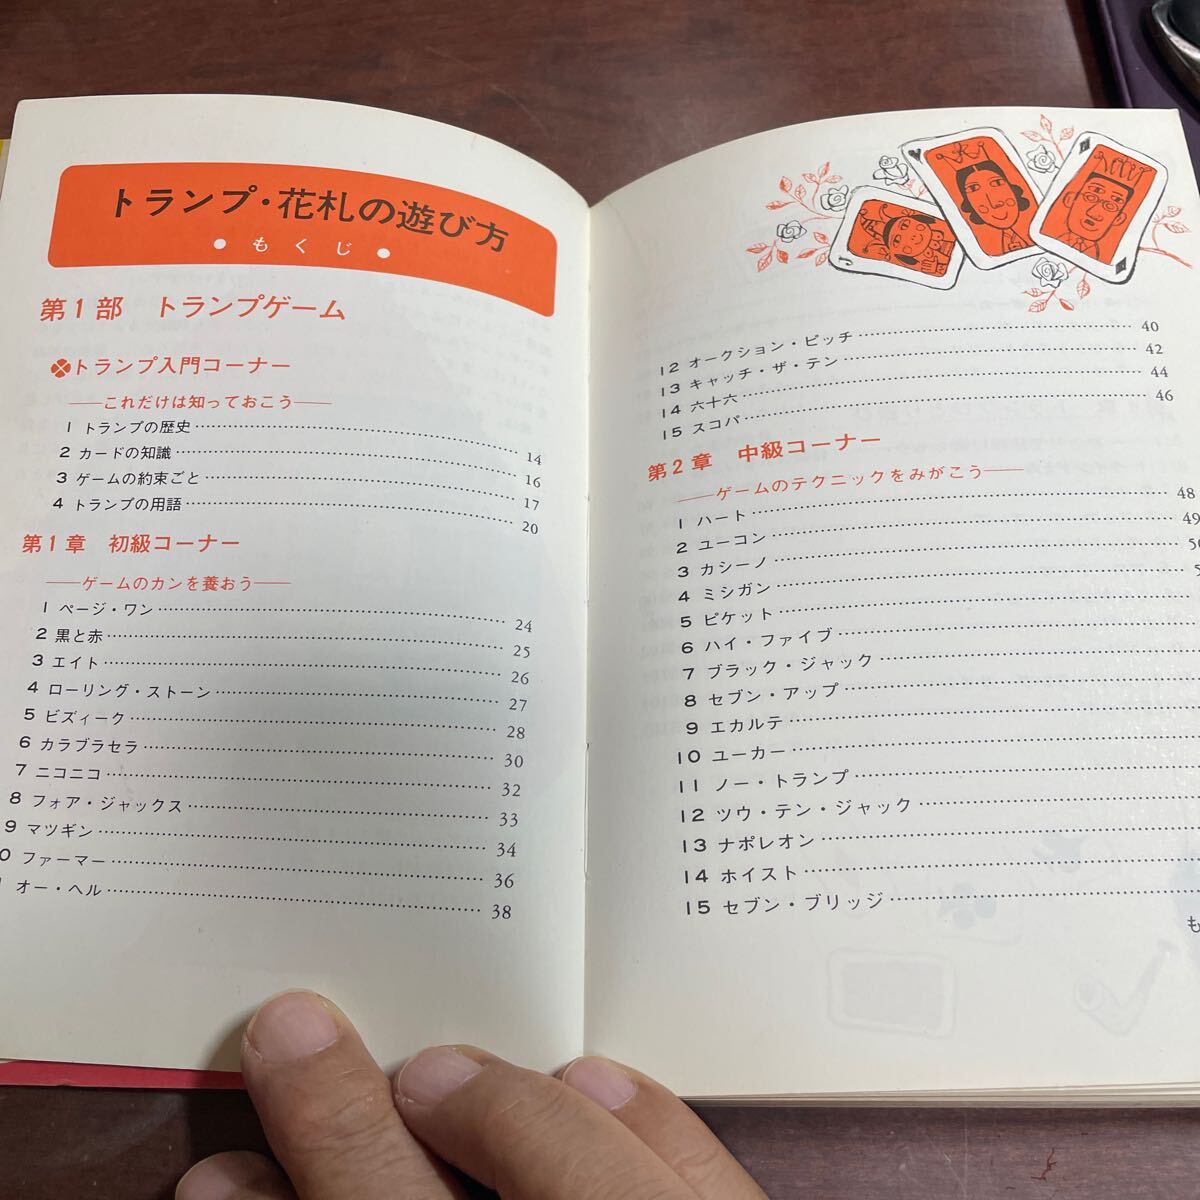 トランプ・花札の遊び方
●もくじ●
第1部 トランプゲーム
トランプ入門コーナー
——これだけは知っておこう——
1 トランプの歴史 14
2 カードの知識 16
3 ゲームの約束ごと 17
4 トランプの用語 20
第1章 初級コーナー
——ゲームのカンを養おう——
1 ページ・ワン 24
2 黒と赤 25
3 エイト 26
4 ローリング・ストーン 27
5 ビズィーク 28
6 カラブラセラ 30
7 ニコニコ 32
8 フォア・ジャックス 33
9 マツギン 34
0 ファーマー 36
1 オー・ヘル 38
12 オークション・ピッチ 40
13 キャッチ・ザ・テン 42
14 六十六 44
15 スコパ 46
第2章 中級コーナー
——ゲームのテクニックをみがこう——
1 ハート 48
2 ユーコン 49
3 カシーノ 50
4 ミシガン 5
5 ピケット
6 ハイ・ファイブ
7 ブラック・ジャック
8 セブン・アップ
9 エカルテ
10 ユーカー
11 ノー・トランプ
12 ツウ・テン・ジャック
13 ナポレオン
14 ホイスト
15 セブン・ブリッジ
も